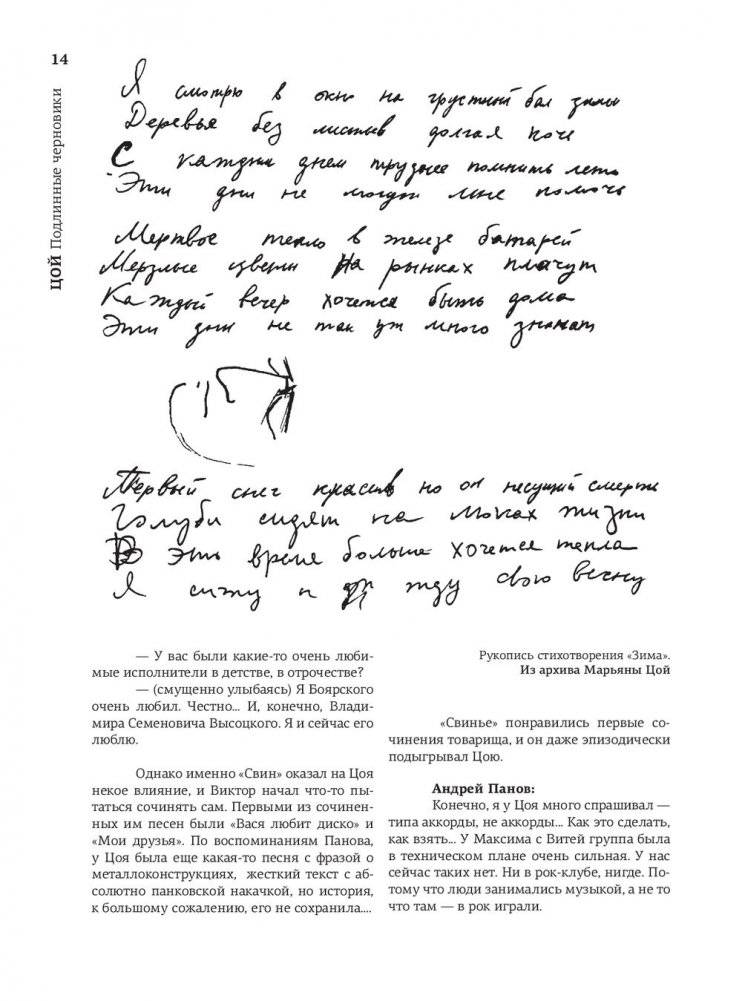 14
ЦОЙ Подлинные черновики
Я смотрю в окно на грустный бал зимы
Деревья без листьев долгая ночь
С каждым днем труднее помнить лето
Эти дни не могут мне помочь
Мертвое тепло в железе батарей
Мерзлые цветы На рынках плачут
Каждый вечер хочется быть дома
Эти дни не так уж много значат
Первый снег красив но он несущий смерть
Голуби сидят на жизни
В это время больше хочется тепла
Я сижу и жду свою весну
— У вас были какие-то очень люби-
мые исполнители в детстве, в отрочестве?
— (смущенно улыбаясь) Я Боярского
очень любил. Честно... И, конечно, Влади-
мира Семеновича Высоцкого. Я и сейчас его
люблю.
Однако именно «Свин» оказал на Цоя
некое влияние, и Виктор начал что-то пы-
таться сочинять сам. Первыми из сочинен-
ных им песен были «Вася любит диско» и
«Мои друзья». По воспоминаниям Панова,
у Цоя была еще какая-то песня с фразой о
металлоконструкциях, жесткий текст с аб-
солютно панковской накачкой, но история,
к большому сожалению, его не сохранила....
Рукопись стихотворения «Зима».
Из архива Марьяны Цой
«Свинье» понравились первые со-
чинения товарища, и он даже эпизодически
подыгрывал Цою.
Андрей Панов:
Конечно, я у Цоя много спрашивал —
типа аккорды, не аккорды... Как это сделать,
как взять... У Максима с Витей группа была
в техническом плане очень сильная. У нас
сейчас таких нет. Ни в рок-клубе, нигде. По-
тому что люди занимались музыкой, а не то
что там — в рок играли.